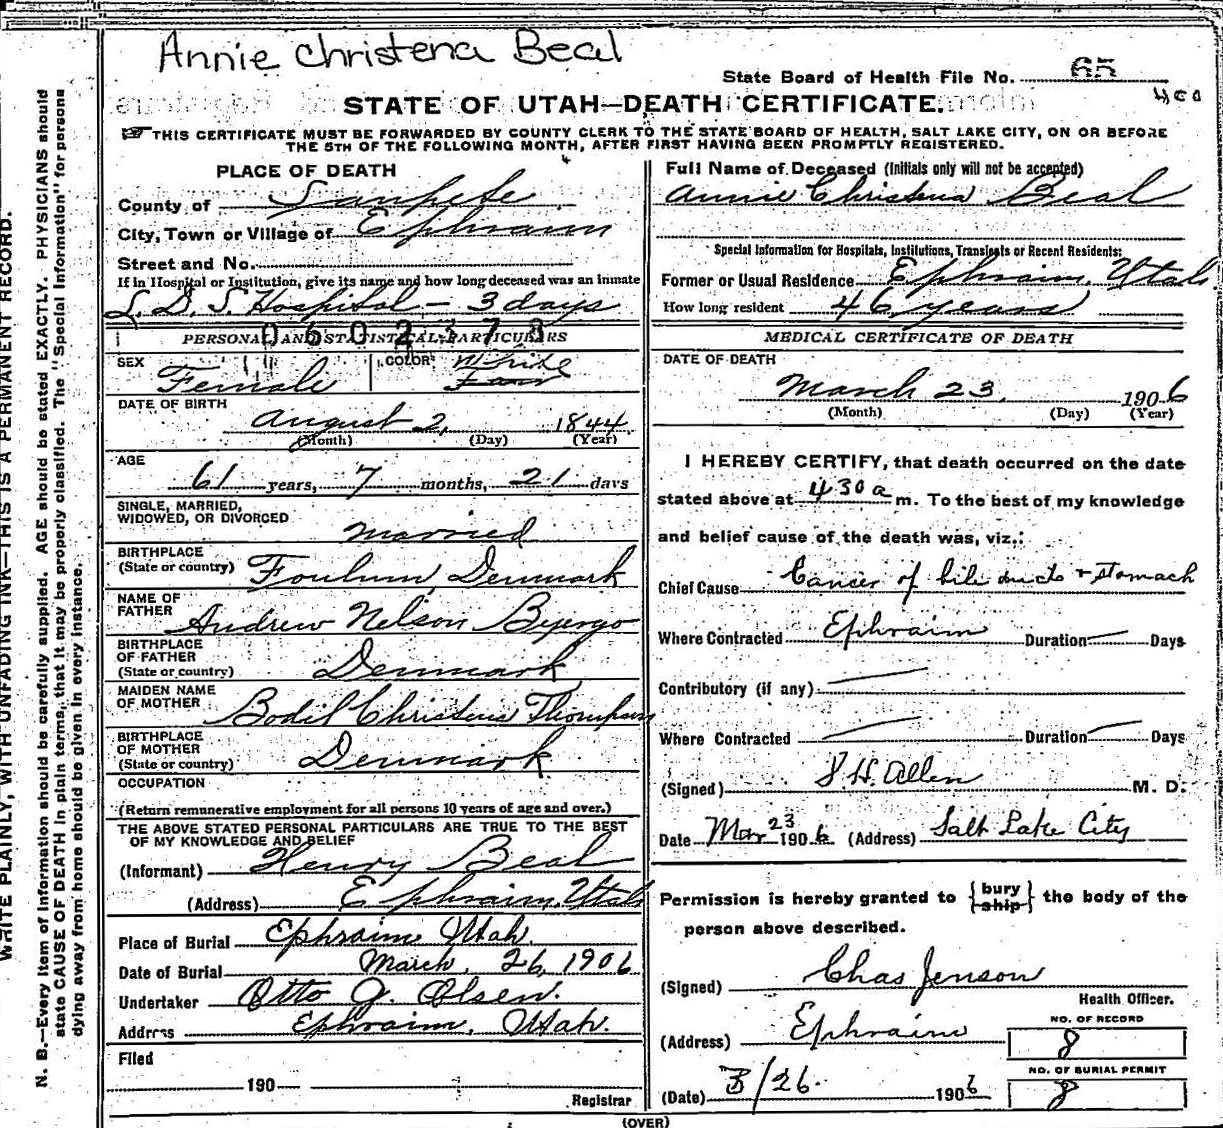 Annie Christena Beal
State Board of Health File No. 65
400
STATE OF UTAH—DEATH CERTIFICATE.
☞ THIS CERTIFICATE MUST BE FORWARDED BY COUNTY CLERK TO THE STATE BOARD OF HEALTH, SALT LAKE CITY, ON OR BEFORE
THE 5TH OF THE FOLLOWING MONTH, AFTER FIRST HAVING BEEN PROMPTLY REGISTERED.
PLACE OF DEATH
County of Sanpete
City, Town or Village of Ephraim
Street and No.
If in Hospital or Institution, give its name and how long deceased was an inmate
L. D. S. Hospital - 3 days
0602378
PERSONAL AND STATISTICAL PARTICULARS
SEX Female COLOR White
DATE OF BIRTH
August 2, 1844
(Month) (Day) (Year)
AGE
61 years, 7 months, 21 days
SINGLE, MARRIED,
WIDOWED, OR DIVORCED Married
BIRTHPLACE
(State or country) Foulum, Denmark
NAME OF
FATHER Andrew Nelson Byergo
BIRTHPLACE
OF FATHER
(State or country) Denmark
MAIDEN NAME
OF MOTHER Bodil Christena Thompson
BIRTHPLACE
OF MOTHER
(State or country) Denmark
OCCUPATION
(Return remunerative employment for all persons 10 years of age and over.)
THE ABOVE STATED PERSONAL PARTICULARS ARE TRUE TO THE BEST
OF MY KNOWLEDGE AND BELIEF
(Informant) Henry Beal
(Address) Ephraim, Utah
Place of Burial Ephraim Utah.
Date of Burial March, 26, 1906
Undertaker Otto J. Olsen.
Address Ephraim, Utah.
Filed
190
Registrar
Full Name of Deceased (Initials only will not be accepted)
Annie Christena Beal
Special Information for Hospitals, Institutions, Transients or Recent Residents:
Former or Usual Residence Ephraim, Utah.
How long resident 46 years
MEDICAL CERTIFICATE OF DEATH
DATE OF DEATH
March 23, 1906
(Month) (Day) (Year)
I HEREBY CERTIFY, that death occurred on the date
stated above at 430 a m. To the best of my knowledge
and belief cause of the death was, viz.:
Chief Cause Cancer of bile ducts & stomach
Where Contracted Ephraim Duration — Days
Contributory (if any) —
Where Contracted — Duration — Days
(Signed) S. H. Allen M. D.
Date Mar 23 1906 (Address) Salt Lake City
Permission is hereby granted to { bury ship } the body of the
person above described.
(Signed) Chas Jenson
Health Officer.
(Address) Ephraim
NO. OF RECORD
8
NO. OF BURIAL PERMIT
(Date) 3/26. 1906 8
(OVER)
WRITE PLAINLY, WITH UNFADING INK—THIS IS A PERMANENT RECORD.
N. B.—Every item of information should be carefully supplied. AGE should be stated EXACTLY. PHYSICIANS should
state CAUSE OF DEATH in plain terms, that it may be properly classified. The "Special Information" for persons
dying away from home should be given in every instance.